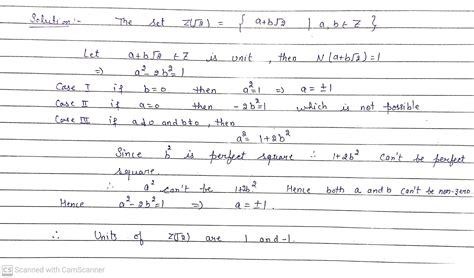 Solution:- The set Z(√2) = { a+b√2 | a, b ∈ Z }
Let a+b√2 ∈ Z is unit, then N(a+b√2)=1
⇒ a²-2b²=1
Case I if b=0 then a²=1 ⇒ a = ±1
Case II if a=0 then -2b²=1 which is not possible
Case III if a≠0 and b≠0, then
a² = 1+2b²
Since b² is perfect square ∴ 1+2b² can't be perfect
square.
∴ a² can't be 1+2b² Hence both a and b can't be non-zero.
Hence a²-2b²=1 ⇒ a = ±1.
∴ Units of Z(√2) are 1 and -1.
CS Scanned with CamScanner